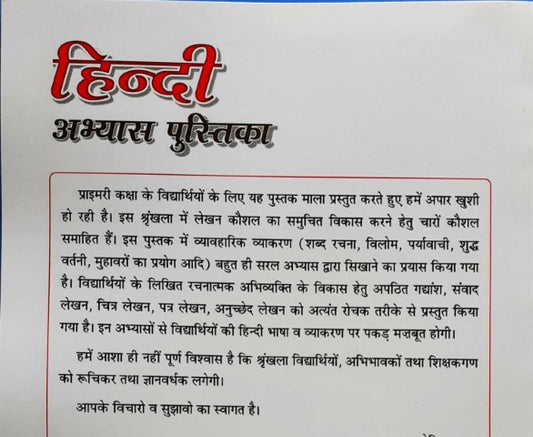 हिन्दी
अभ्यास पुस्तिका
प्राइमरी कक्षा के विद्यार्थियों के लिए यह पुस्तक माला प्रस्तुत करते हुए हमें अपार खुशी
हो रही है। इस श्रृंखला में लेखन कौशल का समुचित विकास करने हेतु चारों कौशल
समाहित हैं। इस पुस्तक में व्यावहारिक व्याकरण (शब्द रचना, विलोम, पर्यावाची, शुद्ध
वर्तनी, मुहावरों का प्रयोग आदि) बहुत ही सरल अभ्यास द्वारा सिखाने का प्रयास किया गया
है। विद्यार्थियों के लिखित रचनात्मक अभिव्यक्ति के विकास हेतु अपठित गद्यांश, संवाद
लेखन, चित्र लेखन, पत्र लेखन, अनुच्छेद लेखन को अत्यंत रोचक तरीके से प्रस्तुत किया
गया है। इन अभ्यासों से विद्यार्थियों की हिन्दी भाषा व व्याकरण पर पकड़ मजबूत होगी।
हमें आशा ही नहीं पूर्ण विश्वास है कि श्रृंखला विद्यार्थियों, अभिभावकों तथा शिक्षकगण
को रूचिकर तथा ज्ञानवर्धक लगेगी।
आपके विचारो व सुझावो का स्वागत है।